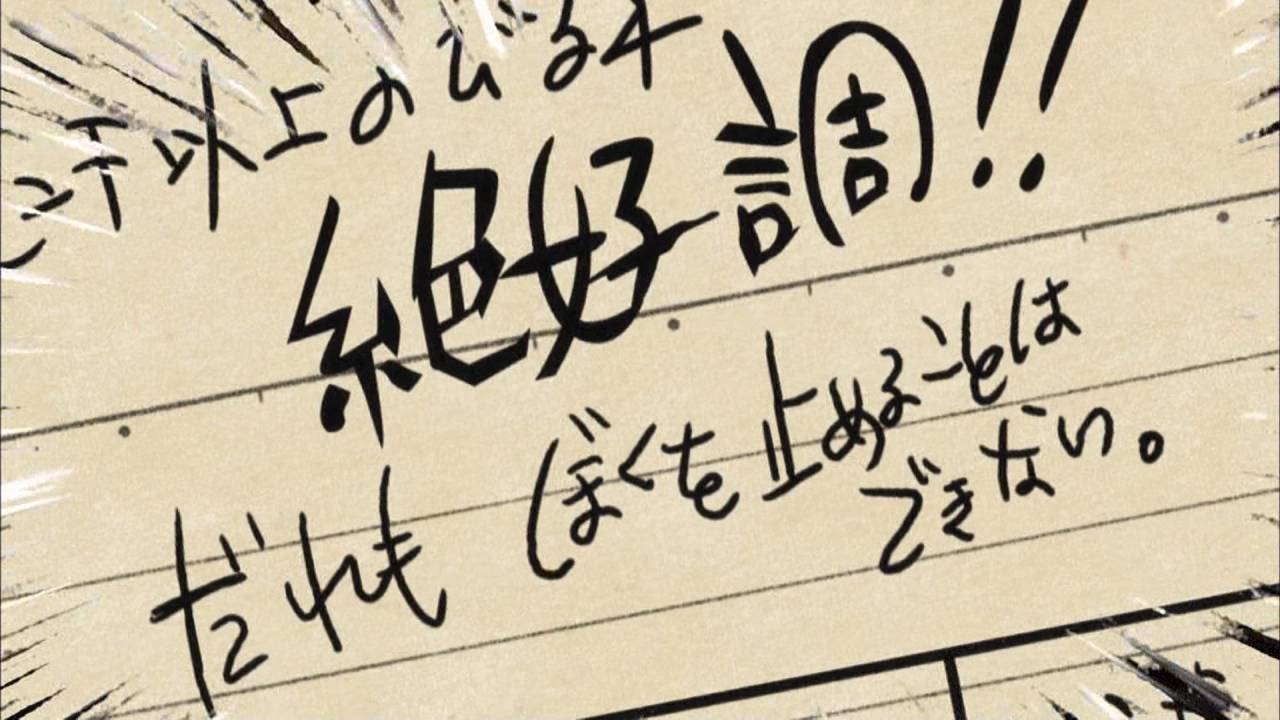 以上の
絶好調!!
だれも ぼくを止めることは
できない。